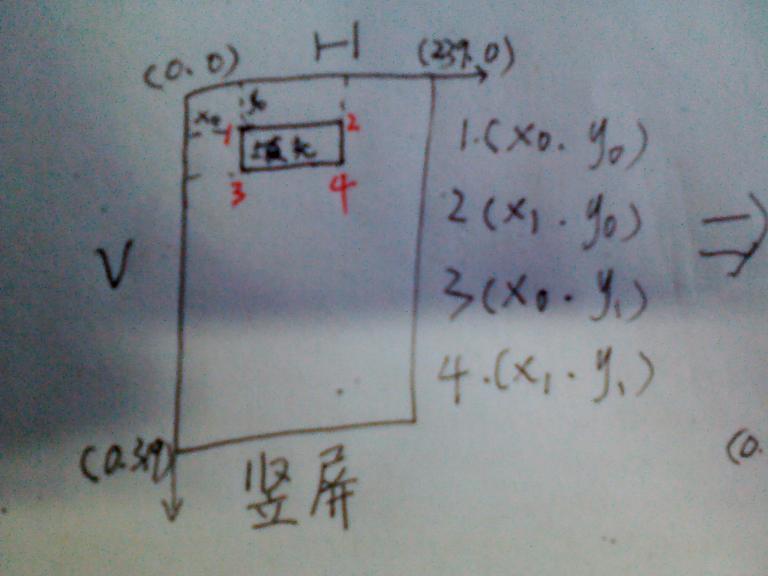 H
(0.0)
(239.0)
x0
y0
1
2
3
4
1.(x0. y0)
2(x1. y0)
3(x0. y1)
4.(x1. y1)
V
(0.319)
竖屏
(0.